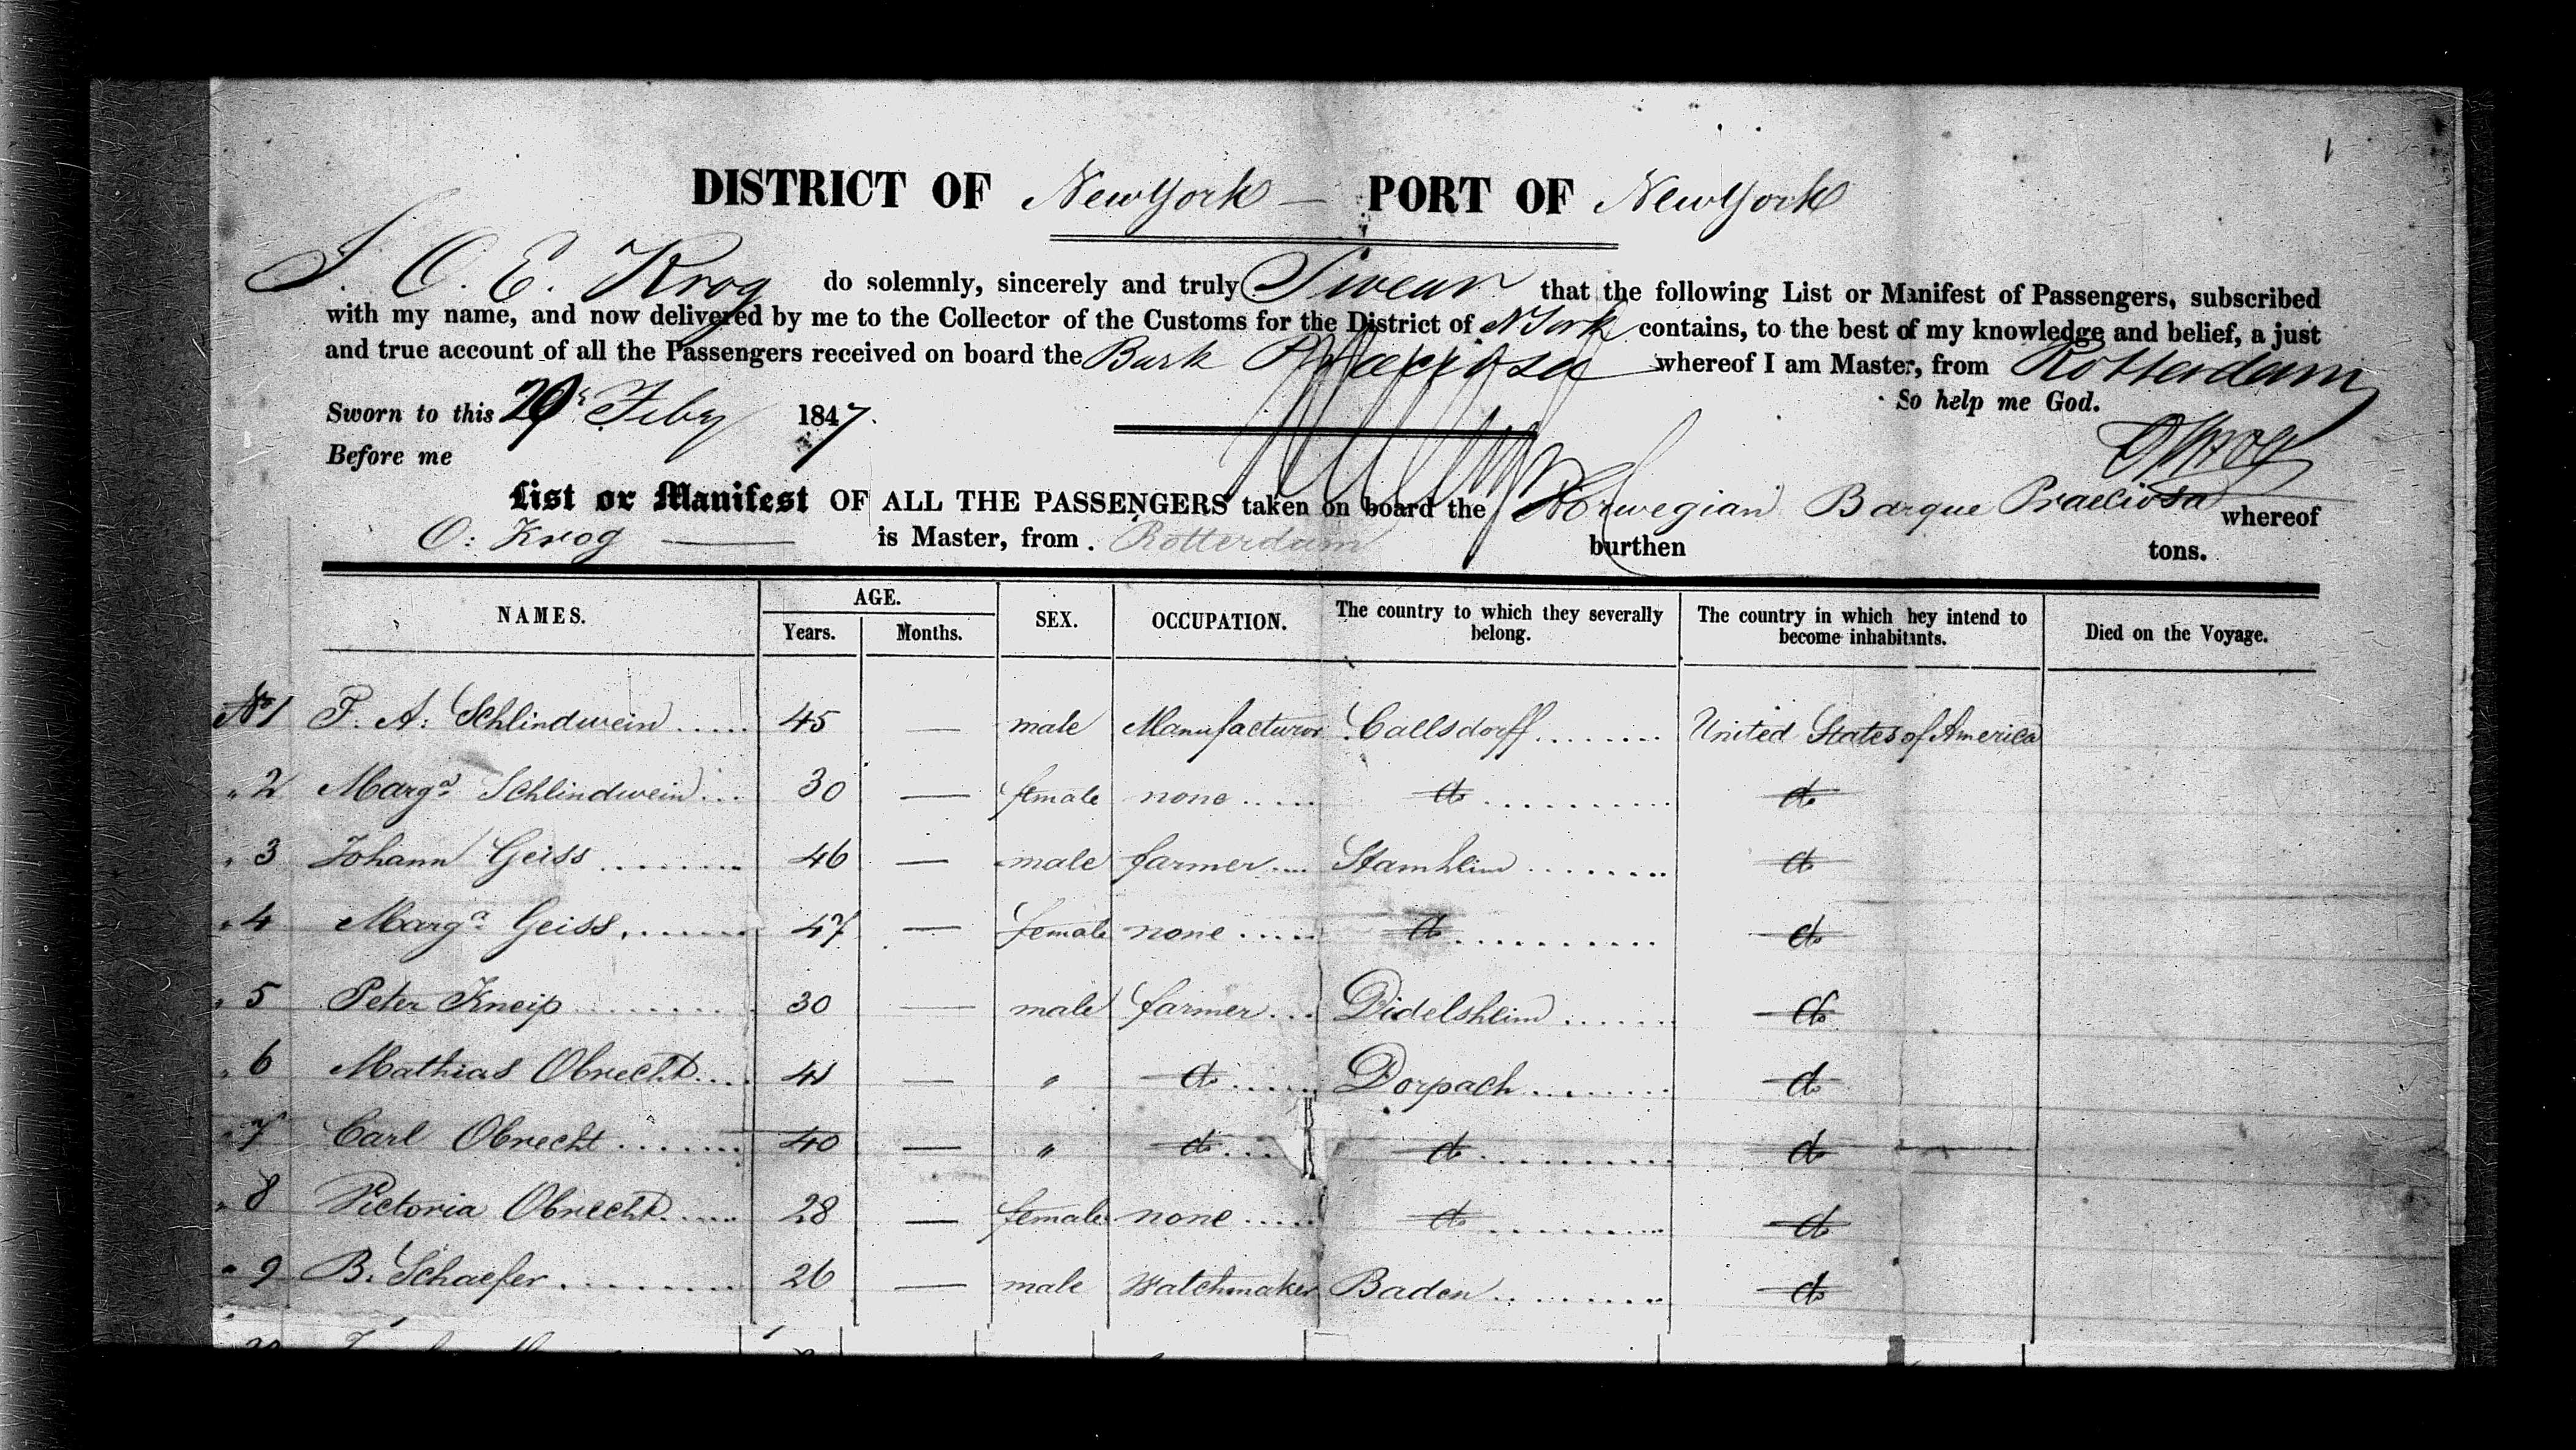 DISTRICT OF New York — PORT OF New York
I. O. E. Krog do solemnly, sincerely and truly Swear that the following List or Manifest of Passengers, subscribed
with my name, and now delivered by me to the Collector of the Customs for the District of NYork contains, to the best of my knowledge and belief, a just
and true account of all the Passengers received on board the Bark Praeciosa whereof I am Master, from Rotterdam
So help me God.
Sworn to this Feby 1847.
OKrog
Before me
List or Manifest OF ALL THE PASSENGERS taken on board the Norwegian Barque Praeciosa whereof
O: Krog — is Master, from Rotterdam burthen tons.
NAMES. AGE. Years. Months. SEX. OCCUPATION. The country to which they severally belong. The country in which hey intend to become inhabitants. Died on the Voyage.
No 1 F. A: Schlindwein ..... 45 — male Manufacturor Callsdorff ........ United States of America
" 2 Marga Schlindwein ... 30 — female none ..... do .......... do
" 3 Johann Geiss ........ 46 — male farmer .... Stamheim ........ do
" 4 Marga Geiss ........ 47 — female none ..... do .......... do
" 5 Peter Kneip ........ 30 — male farmer ... Didelsheim ...... do
" 6 Mathias Obrecht .... 41 — " do ..... Dorpach ........ do
" 7 Carl Obrecht ....... 40 — " do ... do ......... do
" 8 Victoria Obrecht ..... 28 — female none ..... do ......... do
" 9 B. Schaefer ......... 26 — male Watchmaker Baden ......... do